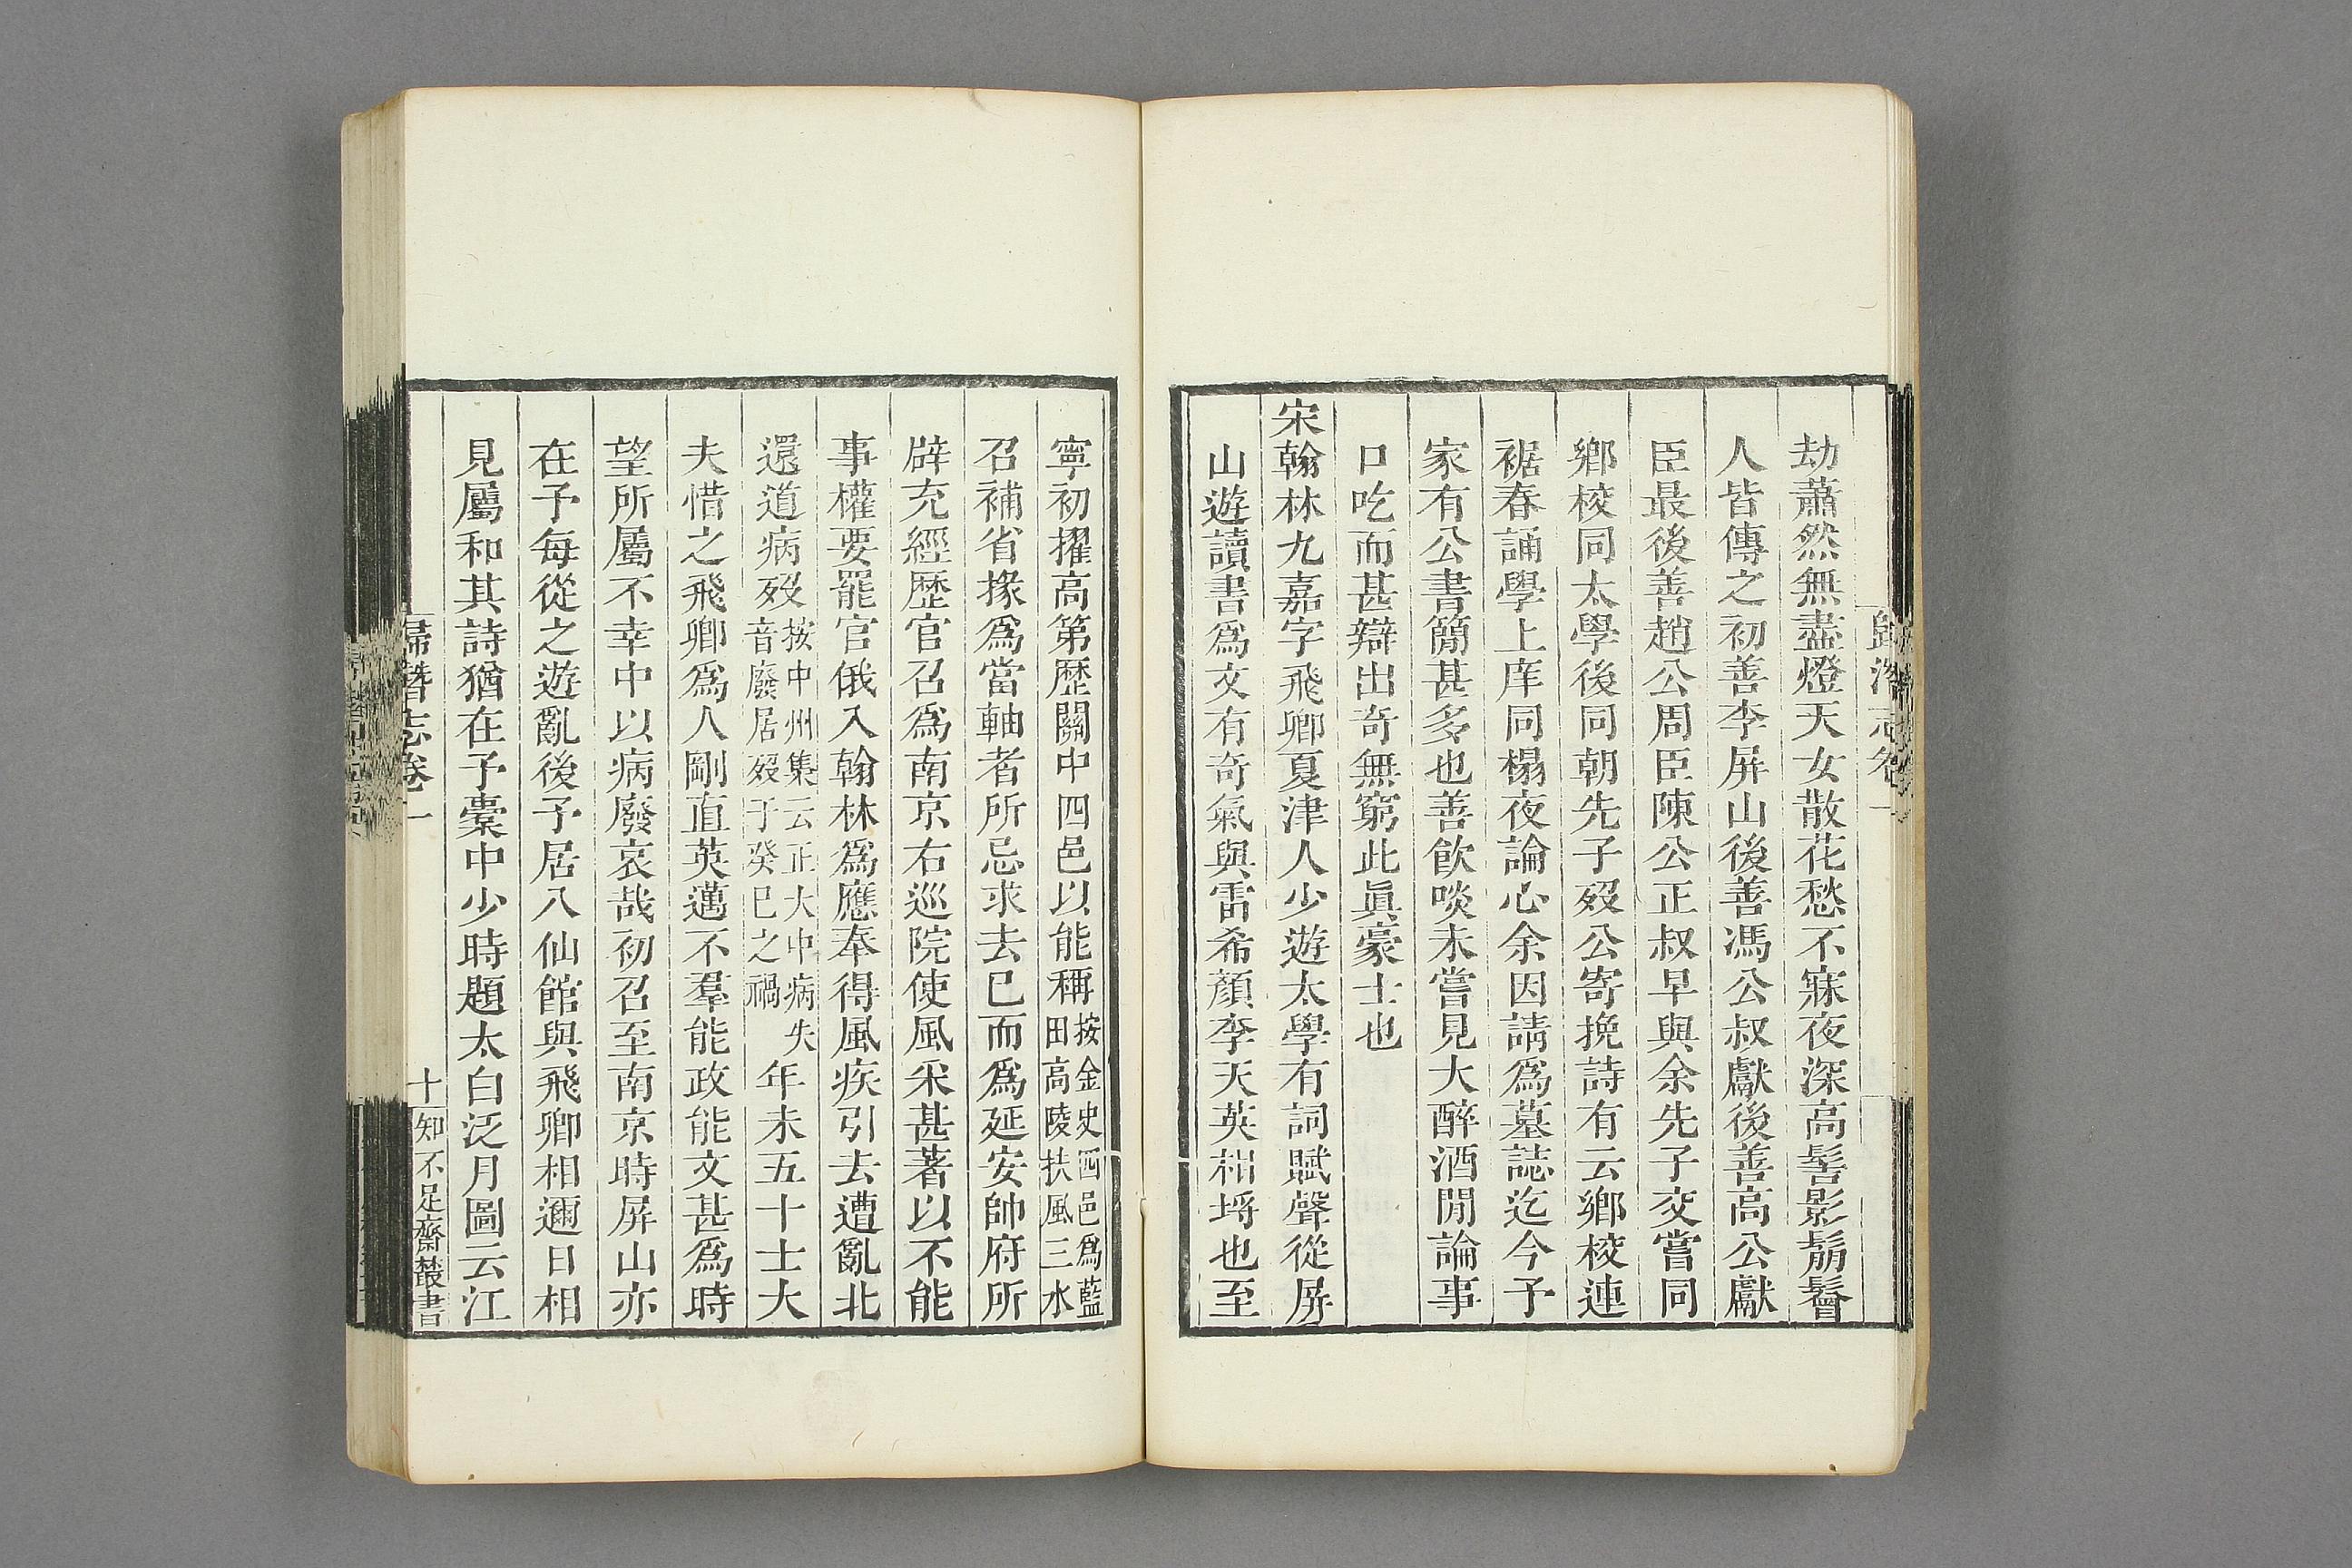 歸潛志卷一
劫蕭然無盡燈天女散花愁不寐夜深高髻影鬅鬠
人皆傳之初善李屏山後善馮公叔獻後善高公獻
臣最後善趙公周臣陳公正叔早與余先子交嘗同
鄉校同太學後同朝先子歿公寄挽詩有云鄉校連
裾春誦學上庠同榻夜論心余因請爲墓誌迄今予
家有公書簡甚多也善飮啖未嘗見大醉酒閒論事
口吃而甚辯出奇無窮此眞豪士也
宋翰林九嘉字飛卿夏津人少遊太學有詞賦聲從屏
山遊讀書爲文有奇氣與雷希顏李天英相埒也至
寧初擢高第歷關中四邑以能稱按金史四邑爲藍田高陵扶風三水
召補省掾爲當軸者所忌求去已而爲延安帥府所
辟充經歷官召爲南京右巡院使風采甚著以不能
事權要罷官俄入翰林爲應奉得風疾引去遭亂北
還道病歿按中州集云正大中病失音廢居歿于癸巳之禍年未五十士大
夫惜之飛卿爲人剛直英邁不羣能政能文甚爲時
望所屬不幸中以病廢哀哉初召至南京時屏山亦
在予每從之遊亂後予居八仙館與飛卿相邇日相
見屬和其詩猶在予橐中少時題太白泛月圖云江
歸潛志卷一
十
知不足齋叢書